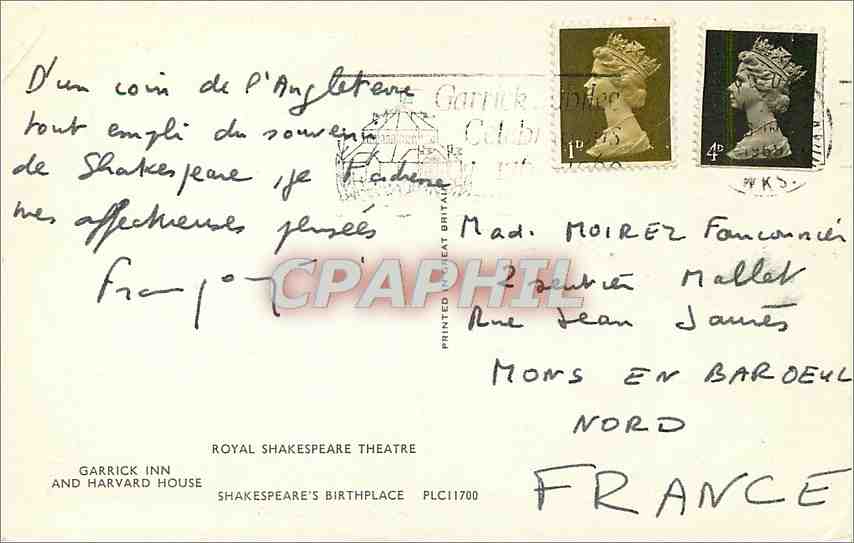 D'un coin de l'Angleterre
tout empli du souvenir
de Shakespeare, je t'adresse
mes affectueuses pensées
Garrick Jubilee
Celebrations
1D
4D
1969
WKS.
PRINTED IN GREAT BRITAIN
CPAPHIL
Mad. MOIREZ Fauconnier
2 sentier Mallet
Rue Jean Jaurès
MONS EN BAROEUL
NORD
FRANCE
ROYAL SHAKESPEARE THEATRE
GARRICK INN
AND HARVARD HOUSE
SHAKESPEARE'S BIRTHPLACE PLC11700